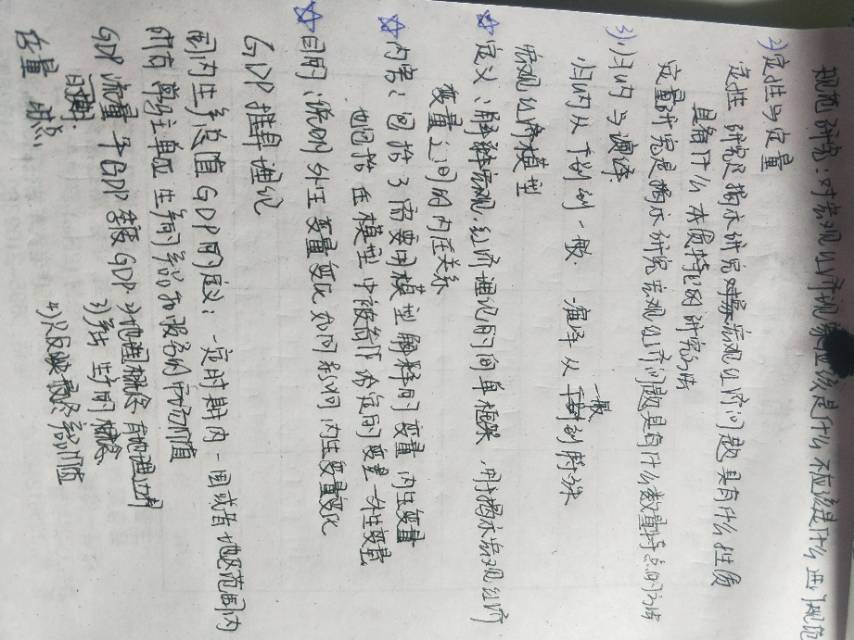 规范研究：对宏观经济现象应该是什么 不应该是什么 进行规范
2)定性与定量
定性 研究是揭示研究对象宏观经济问题具有什么性质
具有什么本质特征的研究方法
定量研究是揭示研究宏观经济问题具有什么数量特点的方法
3)归纳与演绎
归纳从个别到一般. 演绎从一般到特殊
宏观经济模型
☆定义：解释宏观经济理论的简单框架 用于揭示宏观经济
变量之间的内在关系
☆内容：包括了需要用模型解释的变量 内生变量
也包括在模型中被给定的变量—外生变量
☆目的：说明外生变量变化如何影响内生变量变化
GDP推导理论
国内生产总值GDP的定义：一定时期内 一国或者地区范围内
所有 单位生产的产品和服务的市场价值
GDP流量 季GDP 年度GDP 2)地理概念 有地理边界
时期 3)生产的概念
存量 时点 4)只反映最终市场价值